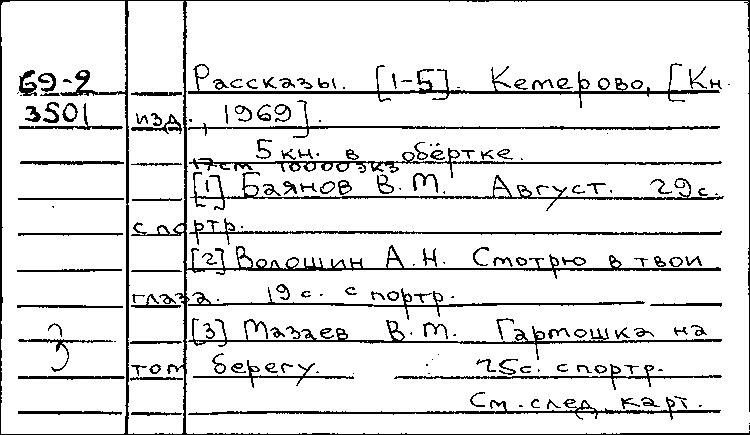 69-9 Рассказы. [1-5]. Кемерово, [Кн.
3501 изд., 1969].
5 кн. в обёртке.
17см 10000экз
[1] Баянов В.М. Август. 29с.
с портр.
[2] Волошин А.Н. Смотрю в твои
глаза. 19с. с портр.
[3] Мазаев В.М. Гармошка на
том берегу. 25с. с портр.
См. след. карт.